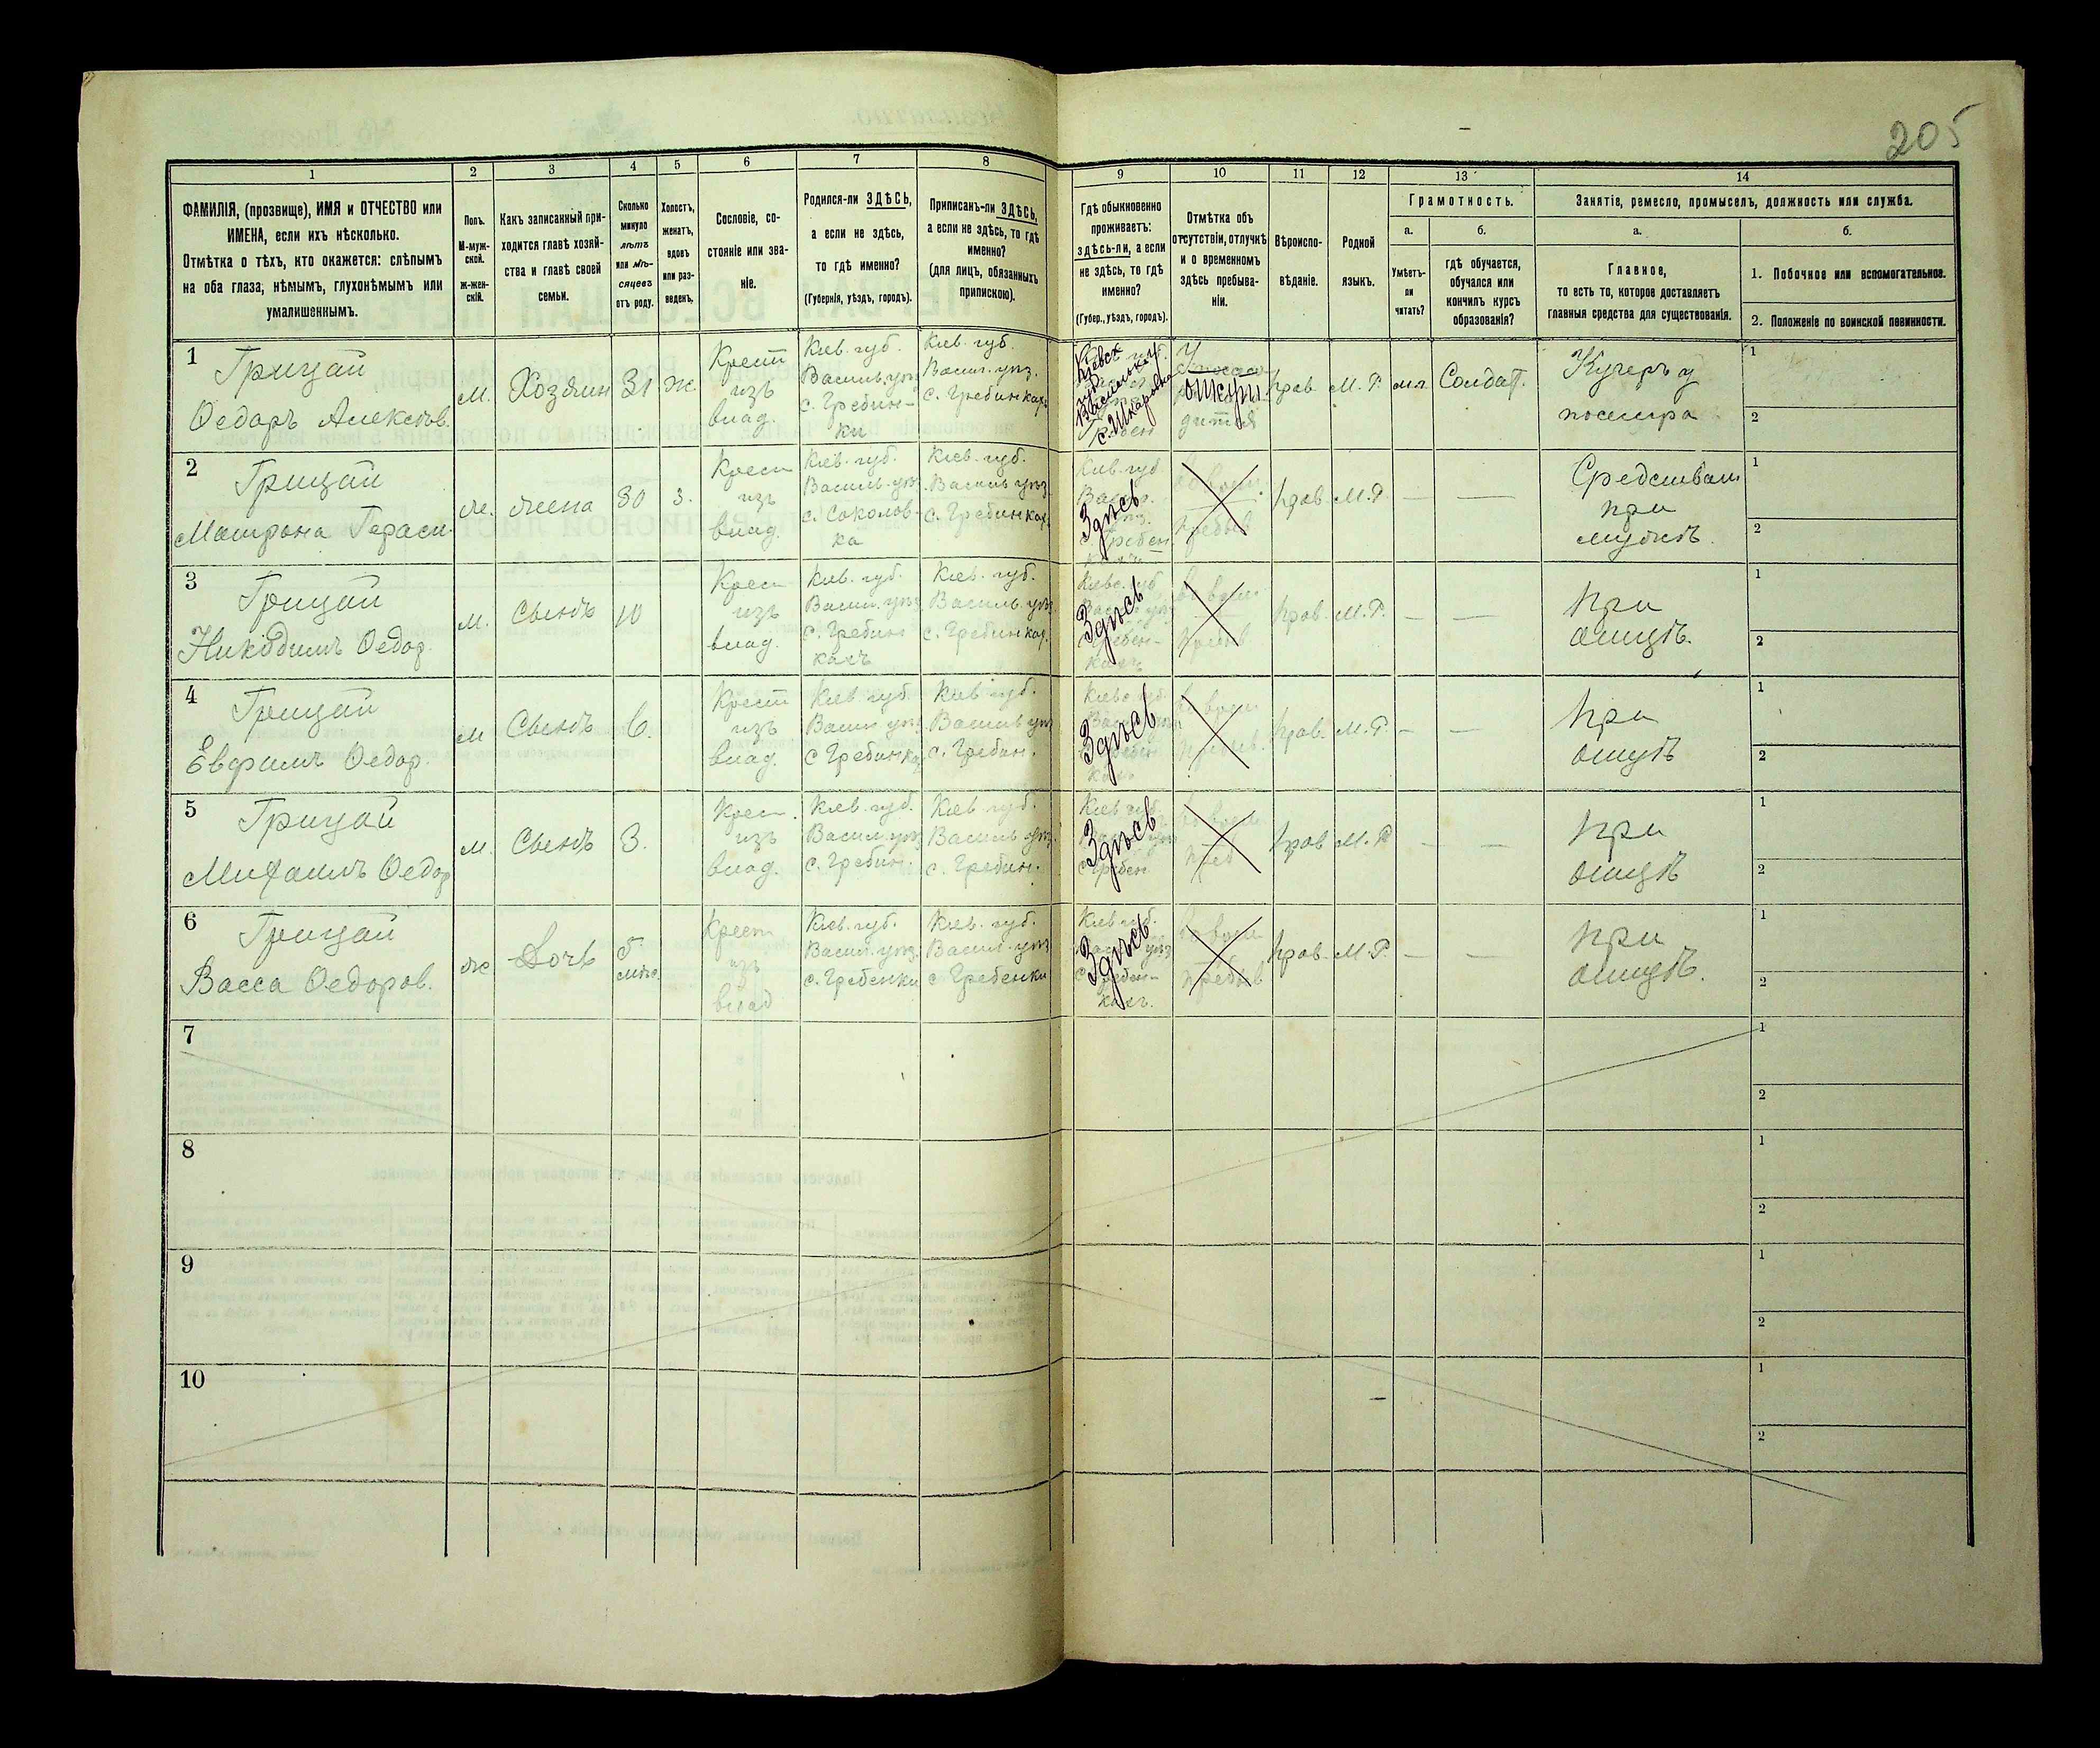 205
1
2
3
4
5
6
7
8
9
10
11
12
13
14
ФАМИЛІЯ, (прозвище), ИМЯ и ОТЧЕСТВО или
ИМЕНА, если ихъ нѣсколько.
Отмѣтка о тѣхъ, кто окажется: слѣпымъ
на оба глаза, нѣмымъ, глухонѣмымъ или
умалишеннымъ.
Полъ.
М-муж-
ской.
ж-жен-
скій.
Какъ записанный при-
ходится главѣ хозяй-
ства и главѣ своей
семьи.
Сколько
минуло
лѣтъ
или мѣ-
сяцевъ
отъ роду.
Холостъ,
женатъ,
вдовъ
или раз-
веденъ.
Сословіе, со-
стояніе или зва-
ніе.
Родился-ли ЗДѢСЬ,
а если не здѣсь,
то гдѣ именно?
(Губернія, уѣздъ, городъ).
Приписанъ-ли ЗДѢСЬ,
а если не здѣсь, то гдѣ
именно?
(для лицъ, обязанныхъ
припискою).
Гдѣ обыкновенно
проживаетъ:
здѣсь-ли, а если
не здѣсь, то гдѣ
именно?
(Губер., уѣздъ, городъ).
Отмѣтка объ
отсутствіи, отлучкѣ
и о временномъ
здѣсь пребыва-
ніи.
Вѣроиспо-
вѣданіе.
Родной
языкъ.
Грамотность.
а.
Умѣетъ-
ли
читать?
б.
гдѣ обучается,
обучался или
кончилъ курсъ
образованія?
Занятіе, ремесло, промыселъ, должность или служба.
а.
Главное,
то есть то, которое доставляетъ
главныя средства для существованія.
б.
1. Побочное или вспомогательное.
2. Положеніе по воинской повинности.
1
Грицай
Ѳедоръ Алексѣев.
м.
Хозяин
31
ж.
Крест
изъ
влад.
Кіев. губ.
Васильк. уѣз.
с. Гребин-
ки
Кіев. губ.
Васил. уѣз.
с. Гребинкахъ
прав.
М. Р.
Солдат.
Кучеръ у
1
2
2
Грицай
Матрона Гераси.
жена
30
з.
Крест
изъ
влад.
Кіев. губ.
Василь. уѣз.
с. Соколов-
ка
Кіев. губ.
Василь уѣз
с. Гребинках.
Здѣсь
прав.
М. Р.
—
—
при
мужѣ.
1
2
3
Грицай
Никодимъ Ѳедор.
м.
Сынъ
10
Крест
изъ
влад.
Кіев. губ.
Васил. уѣз
с. Гребин
кахъ
Кіев. губ.
Василь. уѣз.
с. Гребинках.
Здѣсь
прав.
М. Р.
—
—
при
отцѣ.
1
2
4
Грицай
Евфимъ Ѳедор.
м
Сынъ
6.
Крест
изъ
влад.
Кіев. губ.
Васил уѣз
с Гребинках
Кіев губ.
Василь уѣз
с. Гребин.
Здѣсь
прав.
М. Р.
—
—
при
отцѣ
1
2
5
Грицай
Михаилъ Ѳедор
м.
Сынъ
3.
Крест.
изъ
влад.
Кіев. губ.
Васил. уѣз
с. Гребин.
Кіев губ.
Василь уѣз.
с. Гребин.
Здѣсь
прав
М. Р
—
—
при
отцѣ
1
2
6
Грицай
Васса Ѳедоров.
ж
Дочь
5
мѣс.
Крест
изъ
влад
Кіев. губ.
Васил. уѣз.
с. Гребенки
Кіев. губ.
Васил. уѣз
с Гребенки
Здѣсь
прав.
М. Р.
—
—
при
отцѣ.
1
2
7
1
2
8
1
2
9
1
2
10
1
2